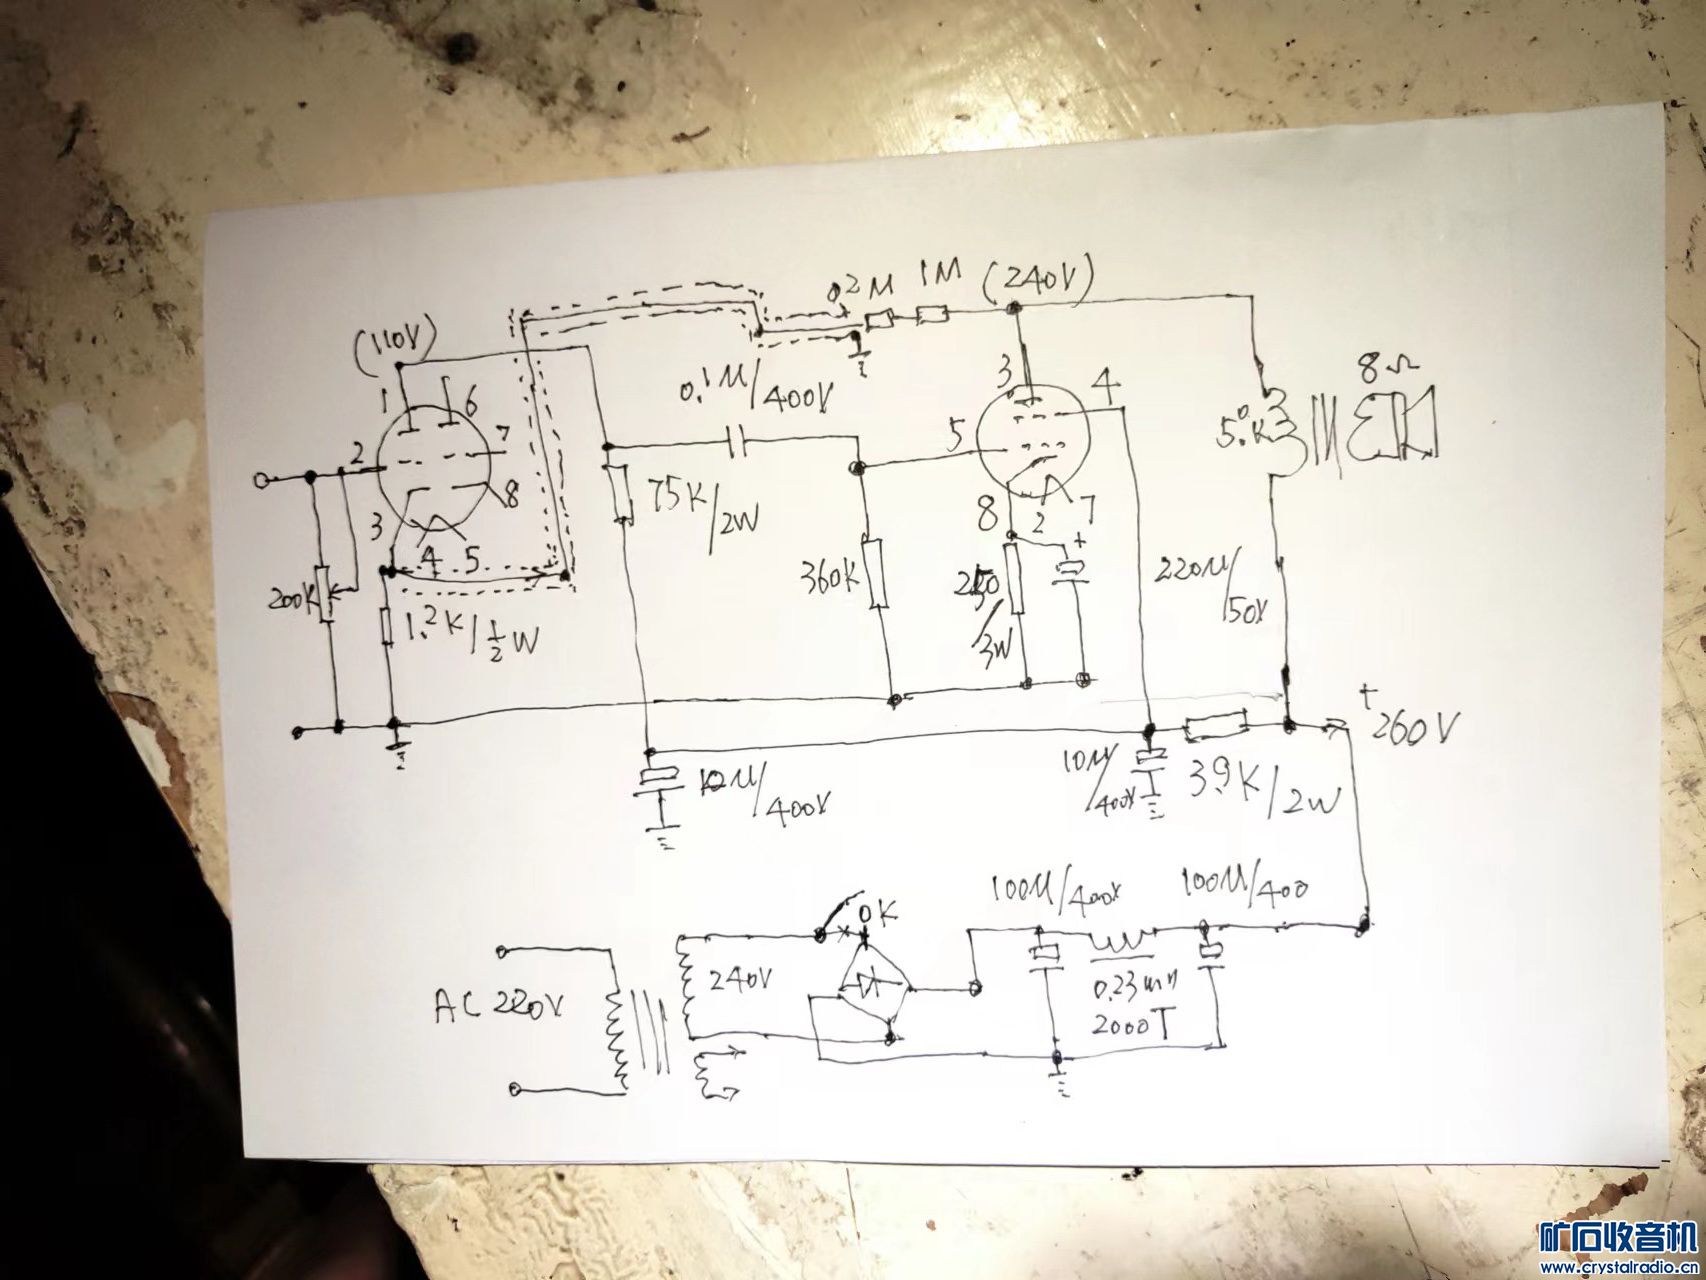 0.2M 1M (240V)
(110V)
1 6
2 7
3 8
4 5
0.1M/400V
3 4
5
8 2 7
8Ω
5.0K
200K
1.2K/½W
75K/2W
360K
/3W
+
220M/50V
+260V
10M/400V
10M/400V
39K/2W
100M/400V
100M/400
OK
240V
AC 220V
0.23mm
2000T
矿石收音机
www.crystalradio.cn